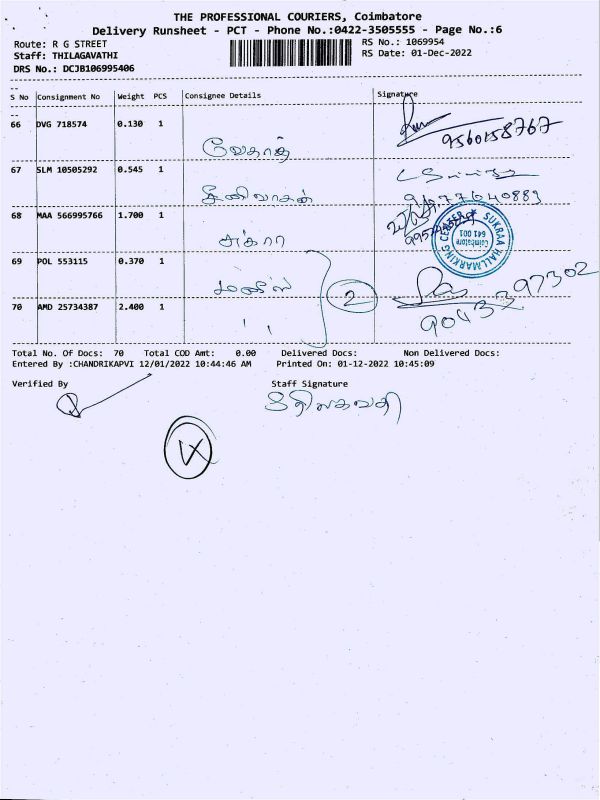 THE PROFESSIONAL COURIERS, Coimbatore
Delivery Runsheet - PCT - Phone No.:0422-3505555 - Page No.:6
Route: R G STREET
RS No.: 1069954
Staff: THILAGAVATHI
RS Date: 01-Dec-2022
DRS No.: DCJB106995406
S No Consignment No Weight PCS Consignee Details Signature
66 DVG 718574 0.130 1
9560158767
67 SLM 10505292 0.545 1
சீனிவாசன்
68 MAA 566995766 1.700 1
SUKRAA HALLMARKING CENTER
Coimbatore
641 001
69 POL 553115 0.370 1
2
70 AMD 25734387 2.400 1
" 
Total No. Of Docs: 70 Total COD Amt: 0.00 Delivered Docs: Non Delivered Docs:
Entered By :CHANDRIKAPVI 12/01/2022 10:44:46 AM Printed On: 01-12-2022 10:45:09
Verified By Staff Signature
திலகவதி